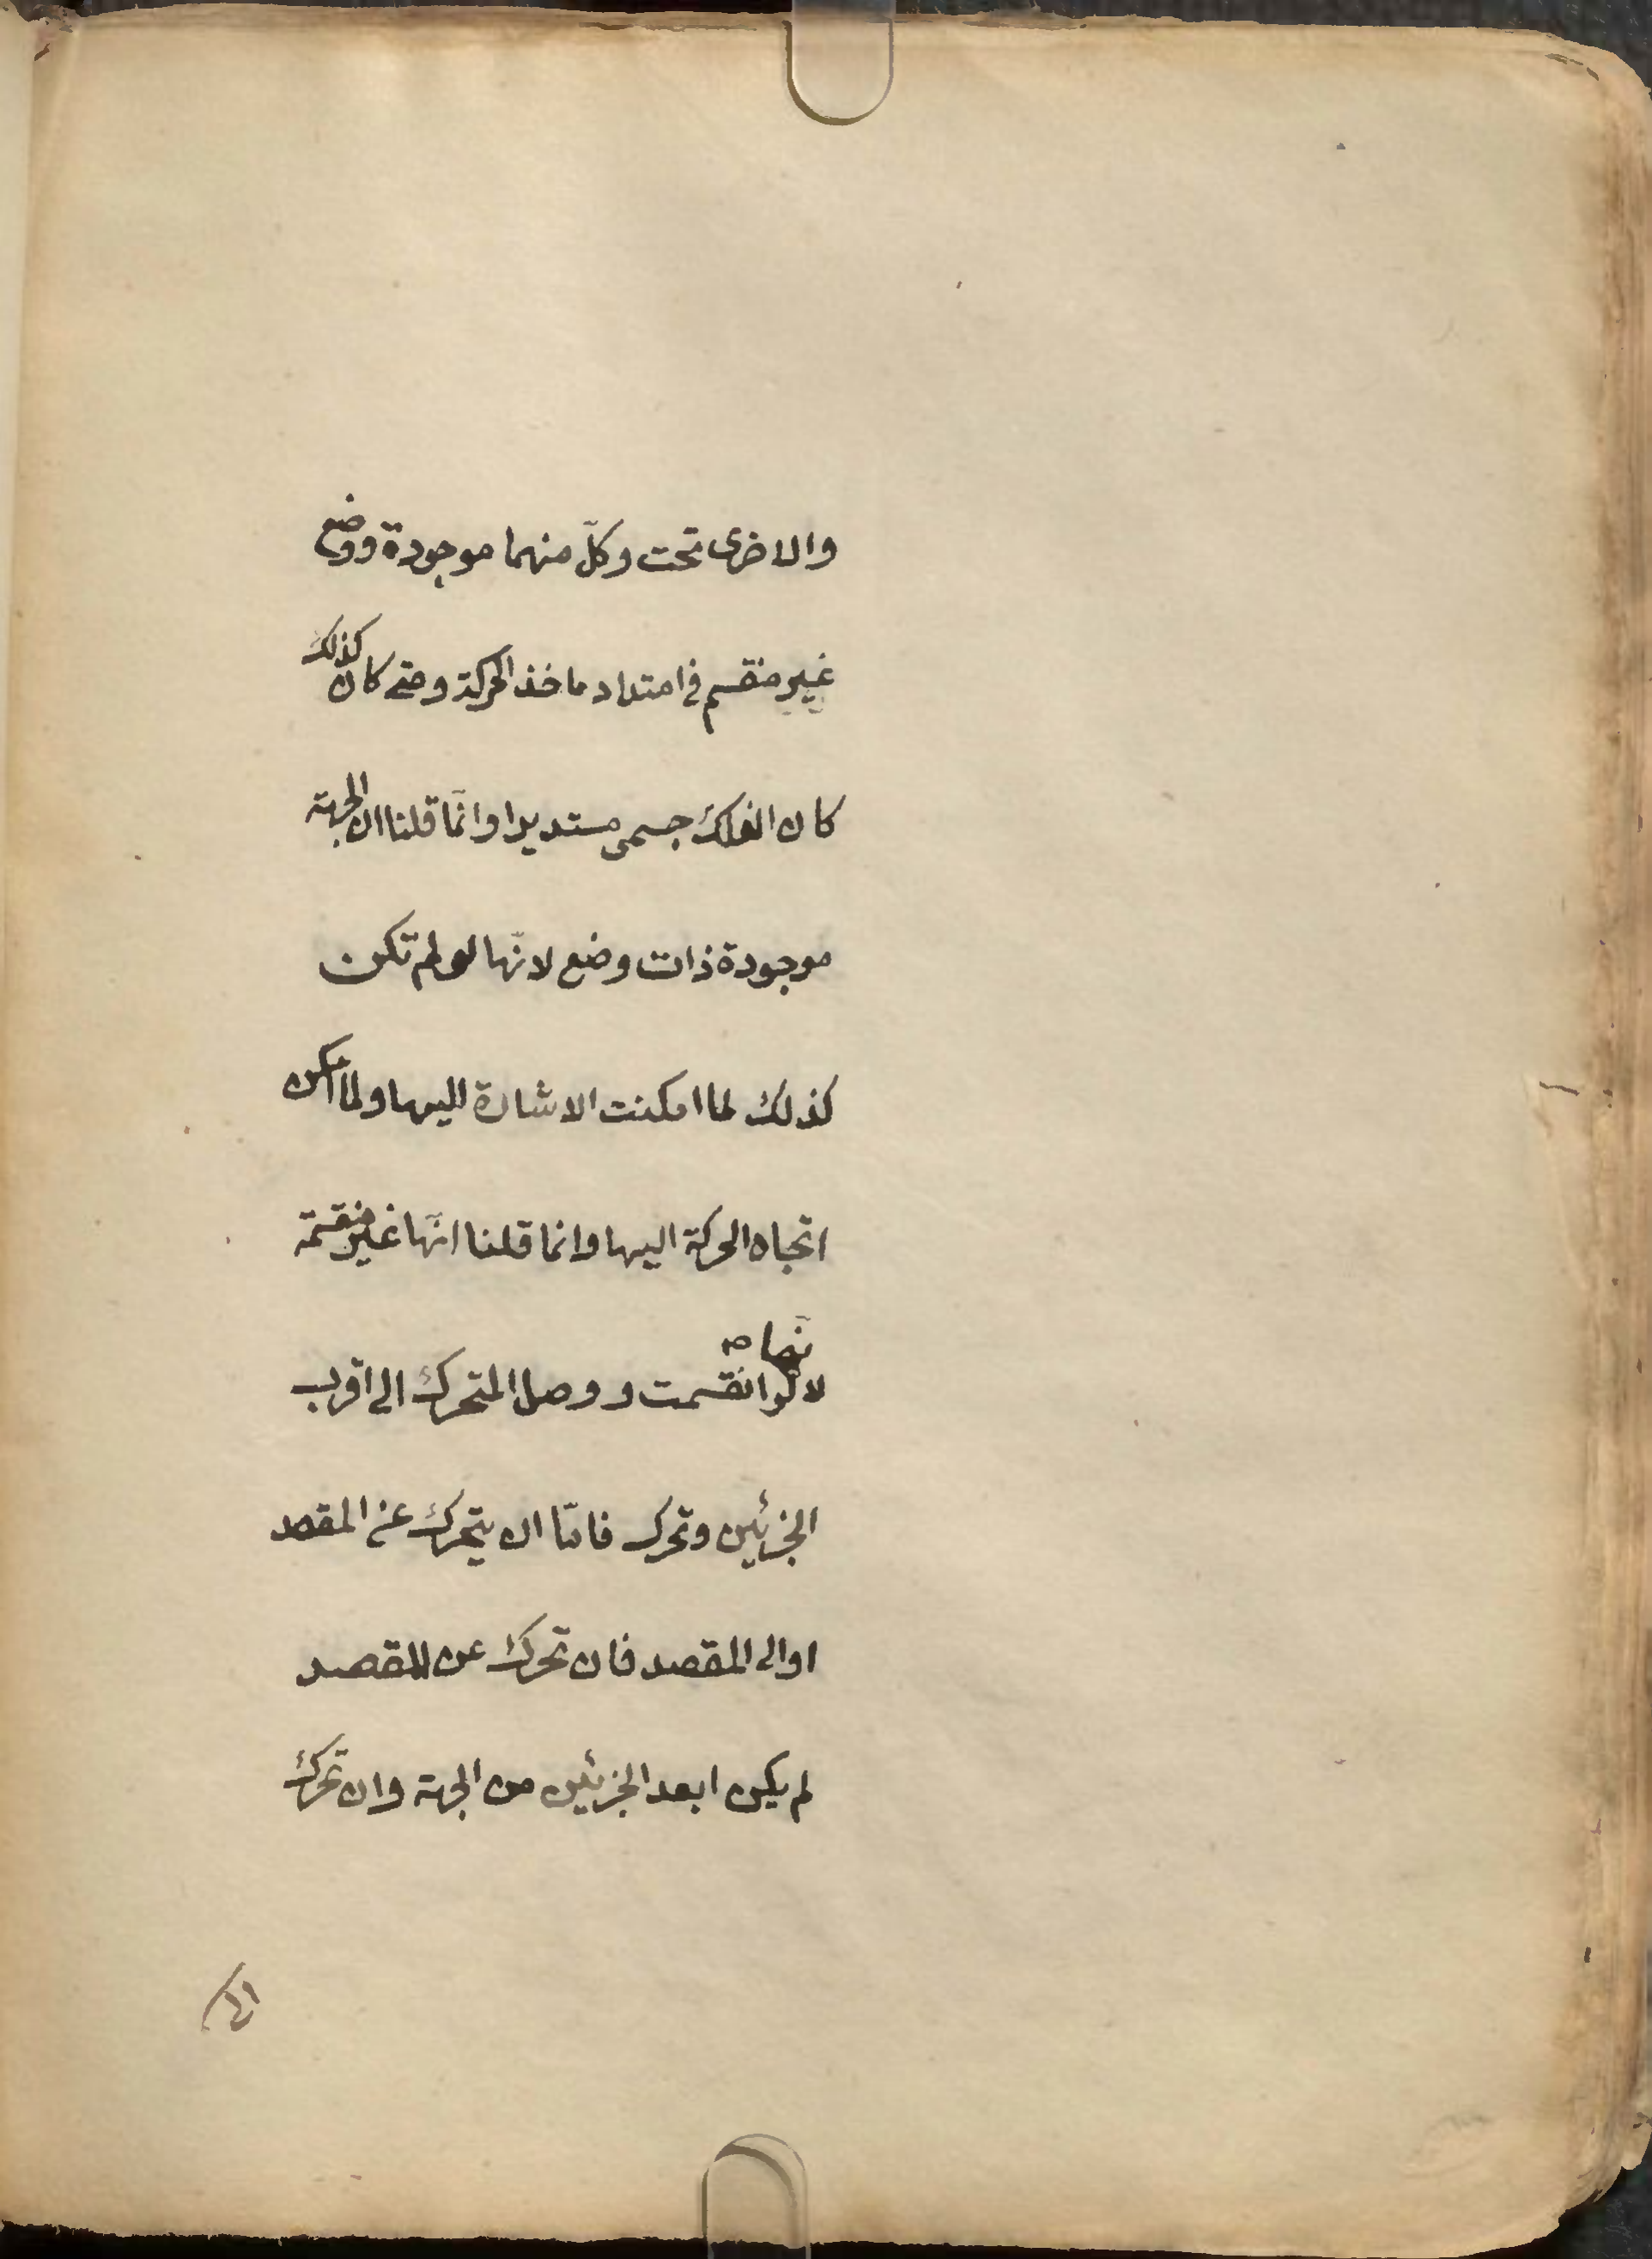 والاخرى تحت وكلّ منهما موجودة ووضع
غير منقسم فى امتداد ماخذ الحركة ومتى كان كذلك
كان الفلك جسمى مستديرا وانّما قلنا ان الجهة
موجودة ذات وضع لانّها لو لم تكن
كذلك لما امكنت الاشارة اليها ولما امكن
اتجاه الحركة اليها وانما قلنا انّها غير منقسمة
لانّها لو انقسمت و وصل المتحرك الى اقرب
الجزئين وتحرك فامّا ان يتحرك عن المقصد
او الى المقصد فان تحرك عن المقصد
لم يكن ابعد الجزئين من الجهة وان تحرك
الى